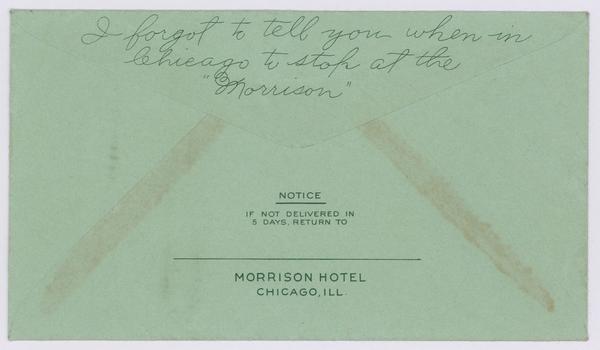 I forgot to tell you when in
Chicago to stop at the
"Morrison"
NOTICE
IF NOT DELIVERED IN
5 DAYS, RETURN TO
MORRISON HOTEL
CHICAGO, ILL.